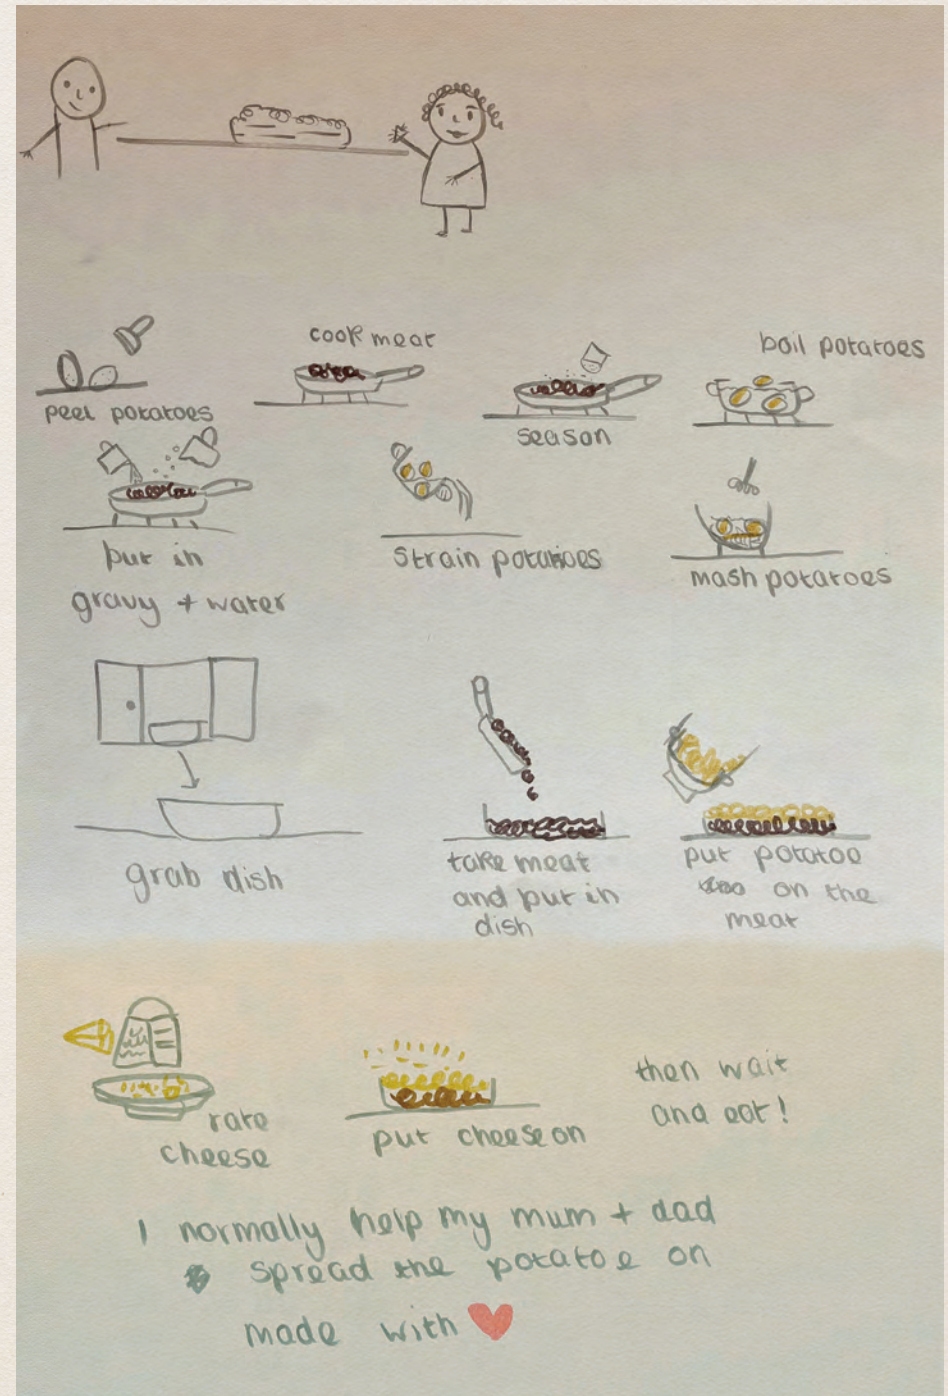 cook meat
boil potatoes
peel potatoes
season
put in
gravy + water
Strain potatoes
mash potatoes
grab dish
take meat
and put in
dish
put potatoe
on the
meat
rate
cheese
put cheese on
then wait
and eat!
I normally help my mum + dad
spread the potatoe on
made with